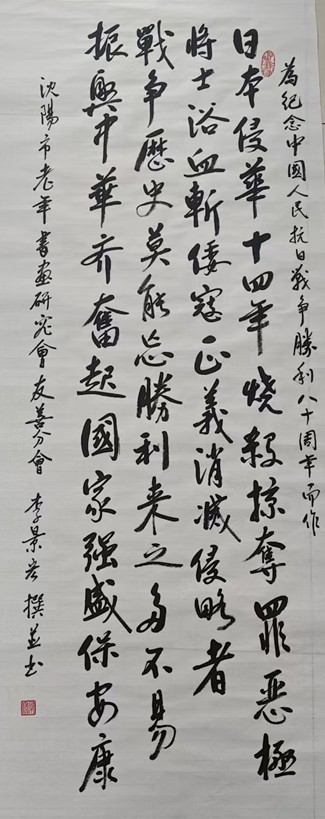 為紀念中國人民抗日戰争勝利八十周年而作
日本侵華十四年燒殺掠奪罪惡極
將士浴血斬倭寇正義消滅侵略者
戰争歷史莫能忘勝利来之多不易
振興中華齐奮起國家强盛保安康
沈陽市老年書画研究會友善分會 李景宏 撰并书